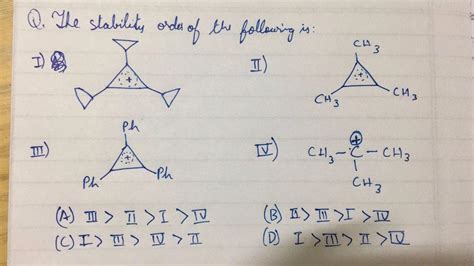 Q. The stability order of the following is:
I) II)
CH3
CH3 CH3
III) Ph IV)
Ph Ph
CH3 - C - CH3
CH3
(A) III > II > I > IV (B) II > III > I > IV
(C) I > III > IV > II (D) I > III > II > IV